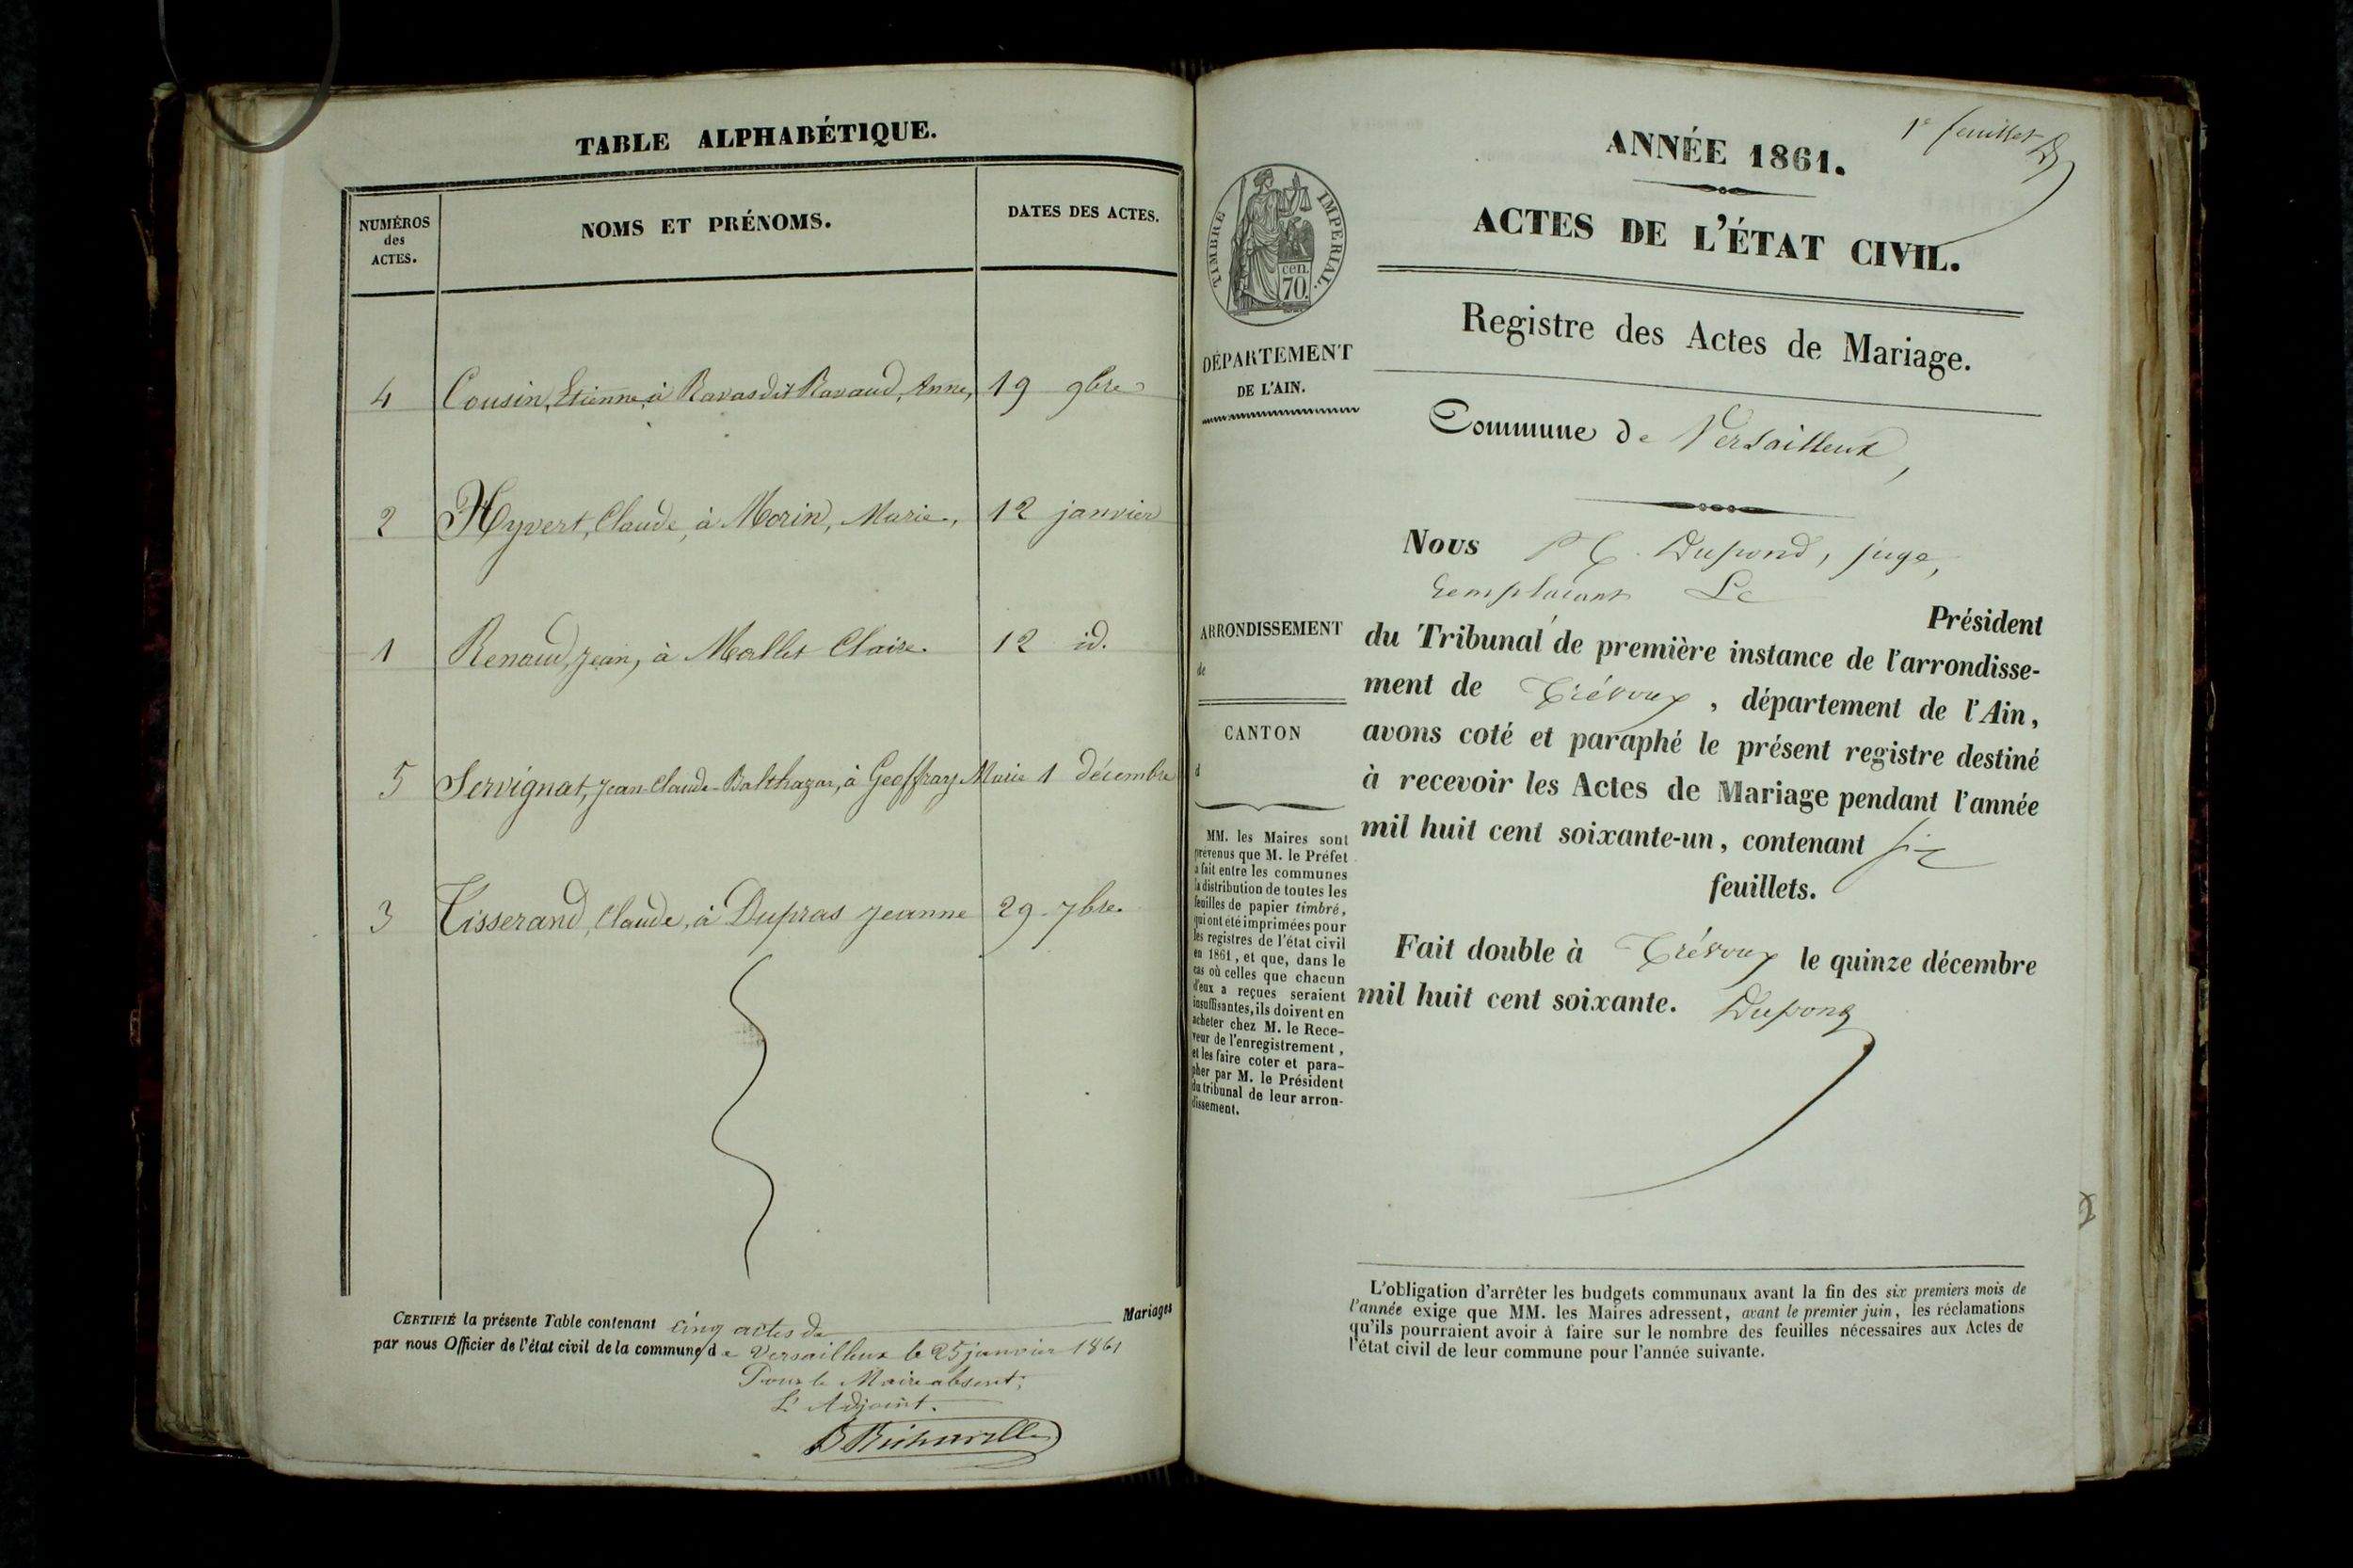 TABLE ALPHABÉTIQUE.
NUMÉROS
des
ACTES.
NOMS ET PRÉNOMS.
DATES DES ACTES.
4 Cousin, Etienne, à Ravas dit Ravaud, Anne, 19 9bre
2 Hyvert, Claude, à Morin, Marie, 12 janvier
1 Renaud, Jean, à Mallet Claire. 12 id.
5 Servignat, Jean-Claude-Balthazar, à Geoffray Marie 1 décembre
3 Tisserand, Claude, à Dupras Jeanne 29 7bre.
CERTIFIÉ la présente Table contenant cinq actes de Mariages
par nous Officier de l'état civil de la commune de Versailleux le 25 janvier 1861
Pour le Maire absent,
L'Adjoint.
1e feuillet
ANNÉE 1861.
ACTES DE L'ÉTAT CIVIL.
TIMBRE IMPERIAL.
cen.
70.
Registre des Actes de Mariage.
DÉPARTEMENT
DE L'AIN.
Commune de Versailleux,
Nous Dupond, juge,
remplacant Le
Président
ARRONDISSEMENT
de
CANTON
d
du Tribunal de première instance de l'arrondisse-
ment de Trévoux, département de l'Ain,
avons coté et paraphé le présent registre destiné
à recevoir les Actes de Mariage pendant l'année
mil huit cent soixante-un, contenant six
feuillets.
Fait double à Trévoux le quinze décembre
mil huit cent soixante. Dupond
MM. les Maires sont
prévenus que M. le Préfet
a fait entre les communes
la distribution de toutes les
feuilles de papier timbré,
qui ont été imprimées pour
les registres de l'état civil
en 1861, et que, dans le
cas où celles que chacun
d'eux a reçues seraient
insuffisantes, ils doivent en
acheter chez M. le Rece-
veur de l'enregistrement,
et les faire coter et para-
pher par M. le Président
du tribunal de leur arron-
dissement.
L'obligation d'arrêter les budgets communaux avant la fin des six premiers mois de
l'année exige que MM. les Maires adressent, avant le premier juin, les réclamations
qu'ils pourraient avoir à faire sur le nombre des feuilles nécessaires aux Actes de
l'état civil de leur commune pour l'année suivante.